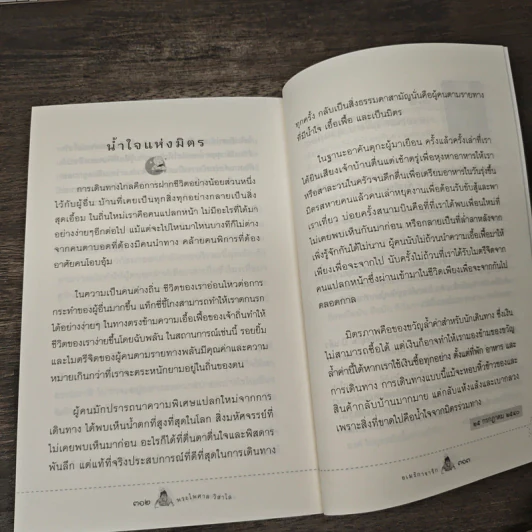 น้ำใจแห่งมิตร
การเดินทางไกลคือการฝากชีวิตอย่างน้อยส่วนหนึ่ง
ไว้กับผู้อื่น บ้านที่เคยเป็นทุกสิ่งทุกอย่างกลายเป็นสิ่ง
สุดเอื้อม ในถิ่นใหม่เราคือคนแปลกหน้า ไม่มีอะไรที่ได้มา
อย่างง่ายๆอีกต่อไป แม้แต่จะไปไหนมาไหนบางทีก็ไม่ต่าง
จากคนตาบอดที่ต้องมีคนนำทาง คล้ายคนพิการที่ต้อง
อาศัยคนโอบอุ้ม
ในความเป็นคนต่างถิ่น ชีวิตของเราอ่อนไหวต่อการ
กระทำของผู้อื่นมากขึ้น แท็กซี่ขี้โกงสามารถทำให้เราตกนรก
ได้อย่างง่ายๆ ในทางตรงข้ามความเอื้อเฟื้อของเจ้าถิ่นทำให้
ชีวิตของเราง่ายขึ้นโดยฉับพลัน ในสถานการณ์เช่นนี้ รอยยิ้ม
และไมตรีจิตของผู้คนตามรายทางพลันมีคุณค่าและความ
หมายเกินกว่าที่เราจะตระหนักยามอยู่ในถิ่นของตน
ผู้คนมักปรารถนาความพิเศษแปลกใหม่จากการ
เดินทาง ได้พบเห็นน้ำตกที่สูงที่สุดในโลก สิ่งมหัศจรรย์ที่
ไม่เคยพบเห็นมาก่อน อะไรก็ได้ที่ตื่นตาตื่นใจและพิสดาร
พันลึก แต่แท้ที่จริงประสบการณ์ที่ดีที่สุดในการเดินทาง
๓๐๒ พระไพศาล วิสาโล
ทุกครั้ง กลับเป็นสิ่งธรรมดาสามัญนั่นคือผู้คนตามรายทาง
ที่มีน้ำใจ เอื้อเฟื้อ และเป็นมิตร
ในฐานะอาคันตุกะผู้มาเยือน ครั้งแล้วครั้งเล่าที่เรา
ได้ยินเสียงเจ้าบ้านตื่นแต่เช้าตรู่เพื่อหุงหาอาหารให้เรา
หรือสาละวนในครัวจนดึกดื่นเพื่อเตรียมอาหารในวันรุ่งขึ้น
มิตรสหายคนแล้วคนเล่าหยุดงานเพื่อต้อนรับขับสู้และพา
เราเที่ยว บ่อยครั้งสนามบินคือที่ที่เราได้พบเพื่อนใหม่ที่
ไม่เคยพบเห็นกันมาก่อน หรือกลายเป็นที่ล่ำลาหลังจาก
เพิ่งรู้จักกันได้ไม่นาน ผู้คนนับไม่ถ้วนนำความเอื้อเฟื้อมาให้
เพียงเพื่อจะจากไป นับครั้งไม่ถ้วนที่เราได้รับไมตรีจิตจาก
คนแปลกหน้าซึ่งผ่านเข้ามาในชีวิตเพียงเพื่อจะจากกันไป
ตลอดกาล
มิตรภาพคือของขวัญล้ำค่าสำหรับนักเดินทาง ซึ่งเงิน
ไม่สามารถซื้อได้ แต่เงินก็อาจทำให้เรามองข้ามของขวัญ
ล้ำค่านี้ได้หากเราใช้เงินซื้อทุกอย่าง ตั้งแต่ที่พัก อาหาร และ
การเดินทาง การเดินทางแบบนี้แม้จะหอบหิ้วข้าวของและ
สินค้ากลับบ้านมากมาย แต่กลับแห้งแล้งและเบากลวง
เพราะสิ่งที่ขาดไปคือน้ำใจจากมิตรร่วมทาง
กรกฎาคม
๓๐๓